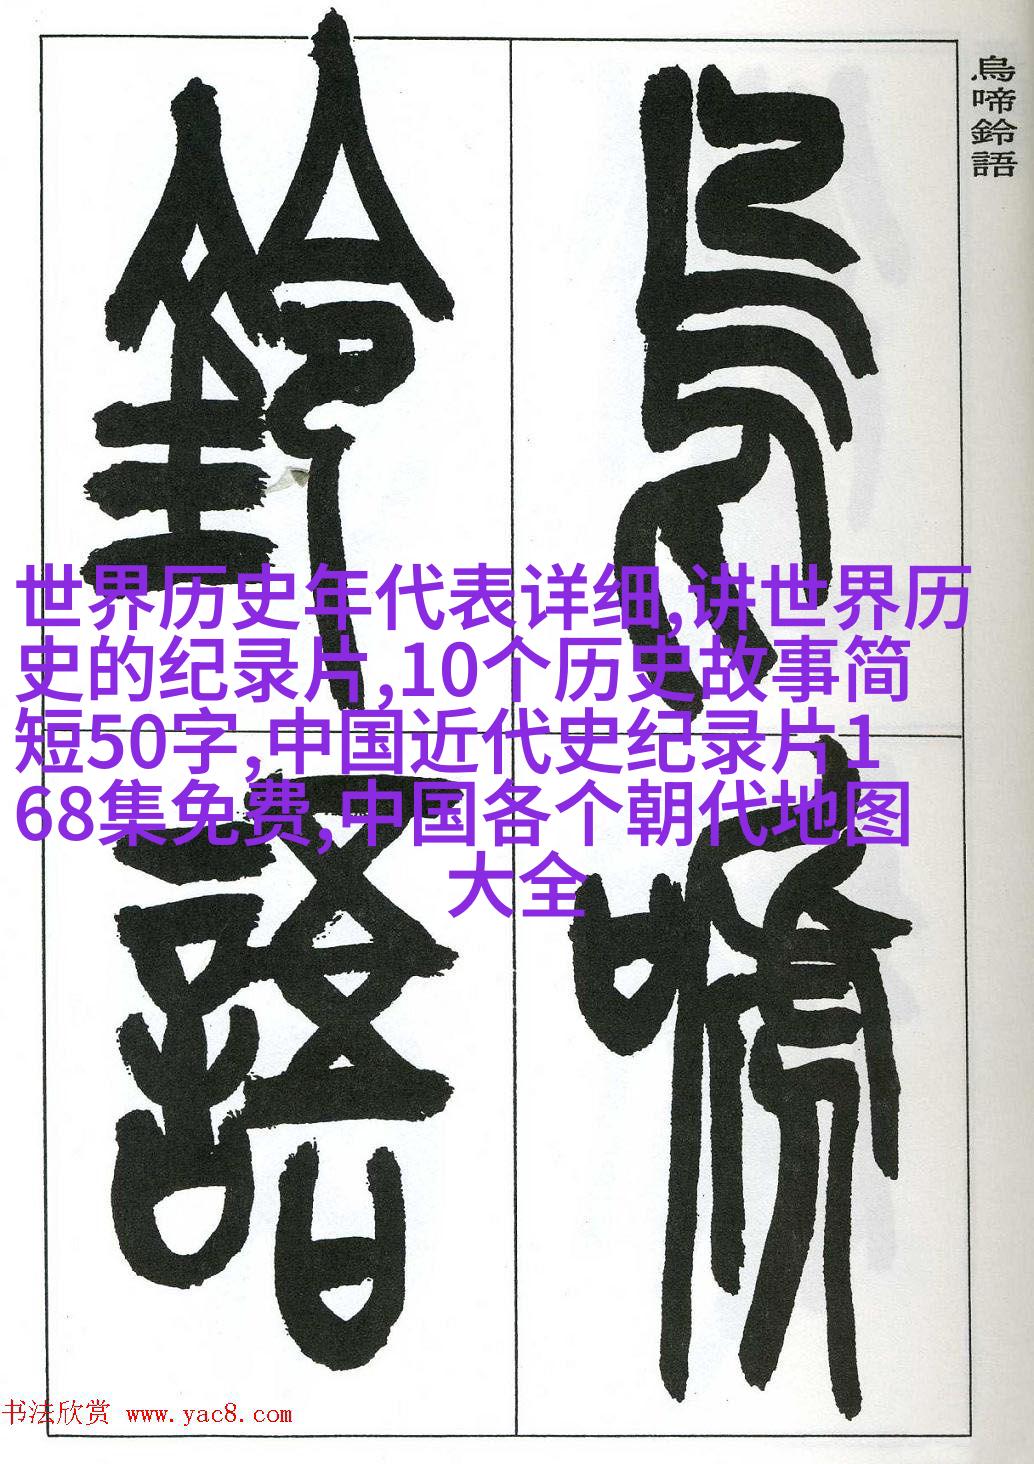 烏啼鈴語
世界历史年代表详细,讲世界历
史的纪录片,10个历史故事简
短50字,中国近代史纪录片1
68集免费,中国各个朝代地图
大全
烏啼
鈴語
书法欣赏 www.yac8.com